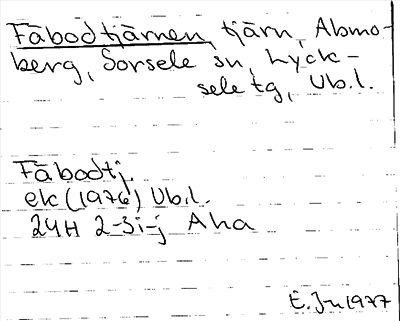 Fäbodtjärnen, tjärn, Abmo-
berg, Sorsele sn, Lyck-
sele tg, Vb.l.
Fäbodtj.
ek (1976) Vb.l.
24H 2-3i-j Aha
E. Jn 1977